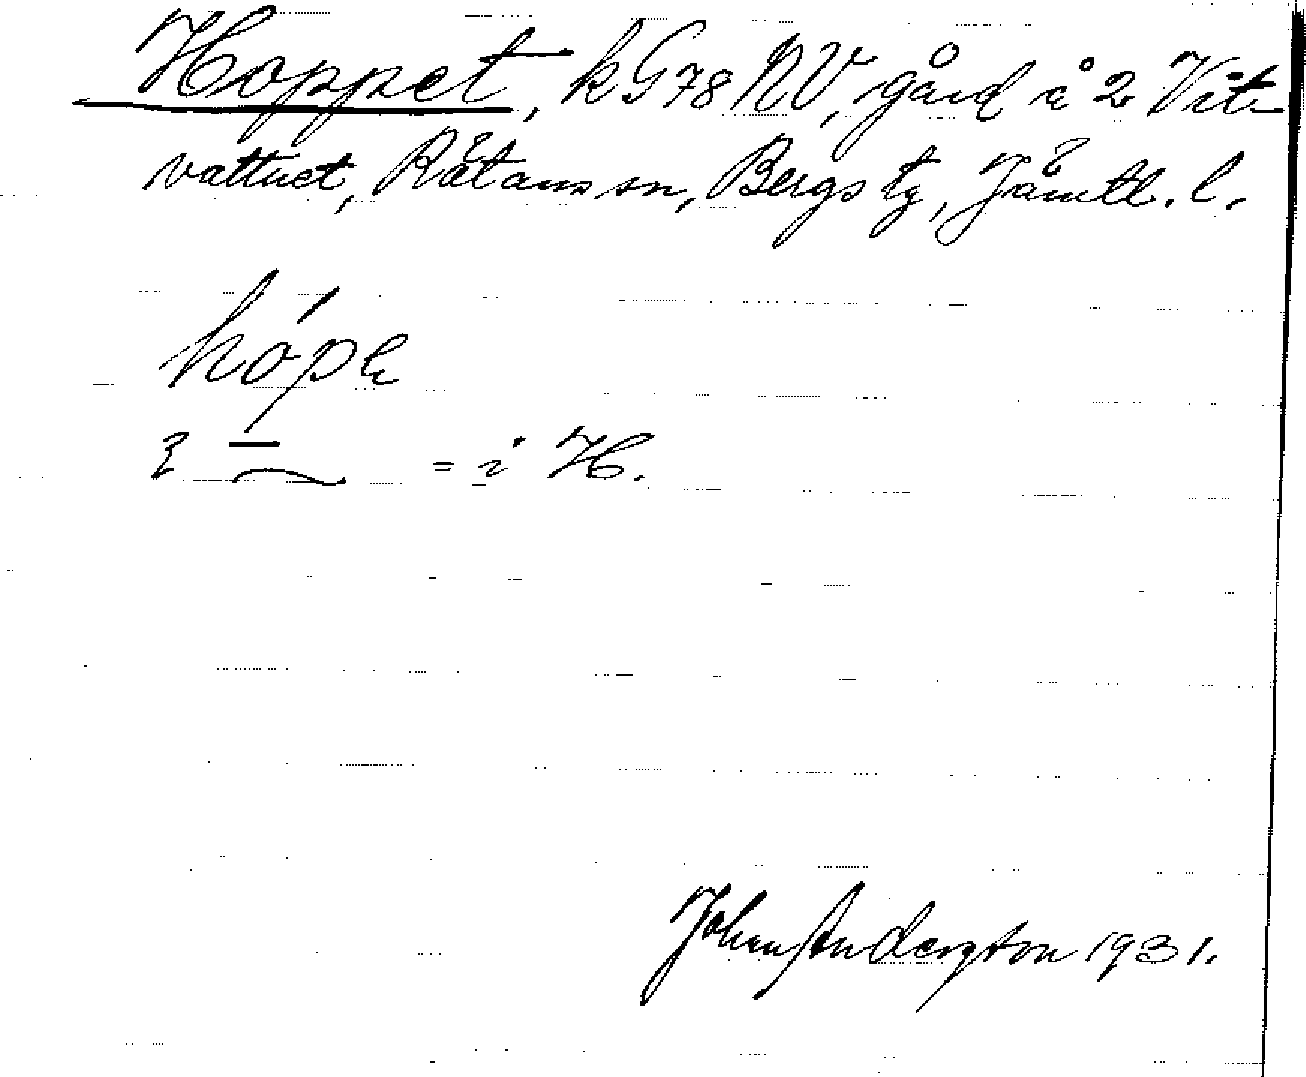 Hoppet, k G78 NV, gård å 2 Vit-
vattnet, Rätans sn, Bergs tg, Jämtl. l.
hópe
= i H.
Johan Anderzton 1931.